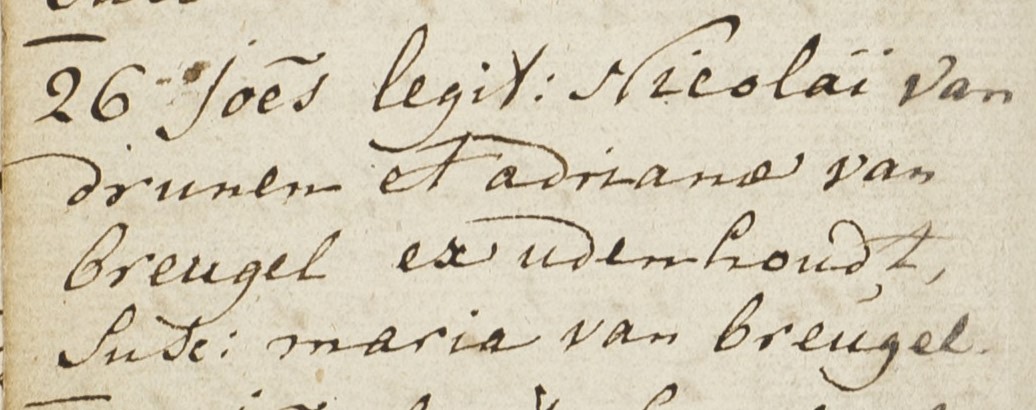 26 Joēs legit: Nicolaï van
drunen et adrianæ van
breugel ex udenhoudt,
Susc: maria van breugel.